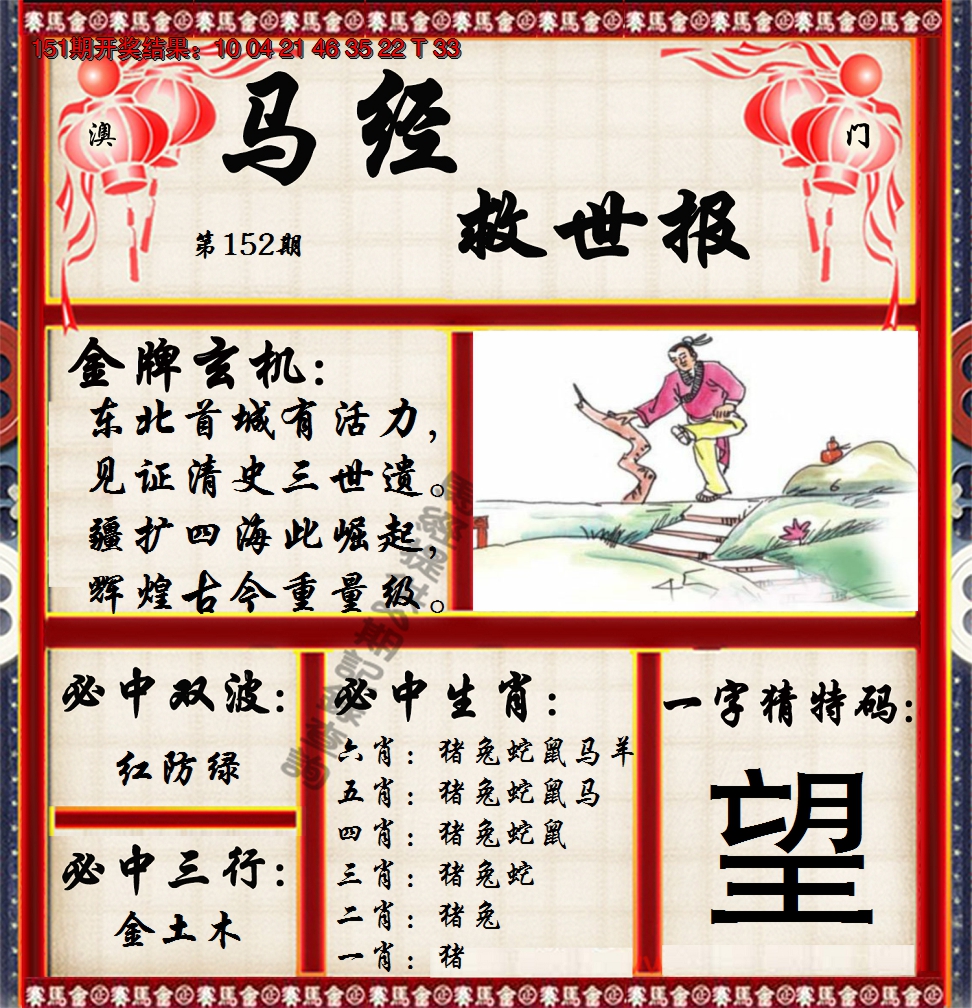 151期开奖结果：10 04 21 46 35 22 T 33
澳
门
马经
救世报
第152期
金牌玄机：
东北首城有活力，
见证清史三世遗。
疆扩四海此崛起，
辉煌古今重量级。
必中双波：
红防绿
必中三行：
金土木
必中生肖：
六肖：猪兔蛇鼠马羊
五肖：猪兔蛇鼠马
四肖：猪兔蛇鼠
三肖：猪兔蛇
二肖：猪兔
一肖：猪
一字猜特码：
望